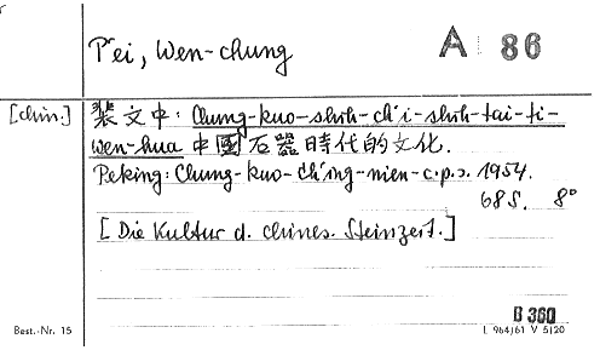 P'ei, Wen-chung
A 86
[chin.]
裴文中: Chung-kuo-shih-ch'i-shih-tai-ti-
wen-hua 中國石器時代的文化.
Peking: Chung-kuo-ch'ing-nien-c.p.s. 1954.
68 S. 8°
[Die Kultur d. chines. Steinzeit.]
B 360
Best.-Nr. 15
L 964/61 V 5/20